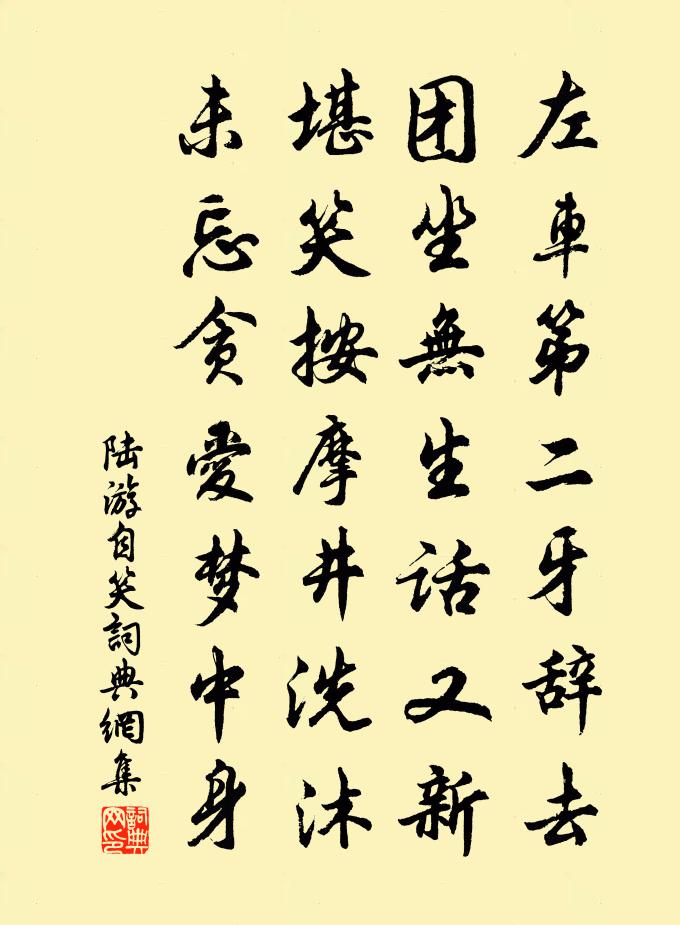 左車第二牙辞去
团坐無生话又新
堪笑按摩井洗沐
未忘貪愛梦中身
陆游自笑詞典網集
詞典网印